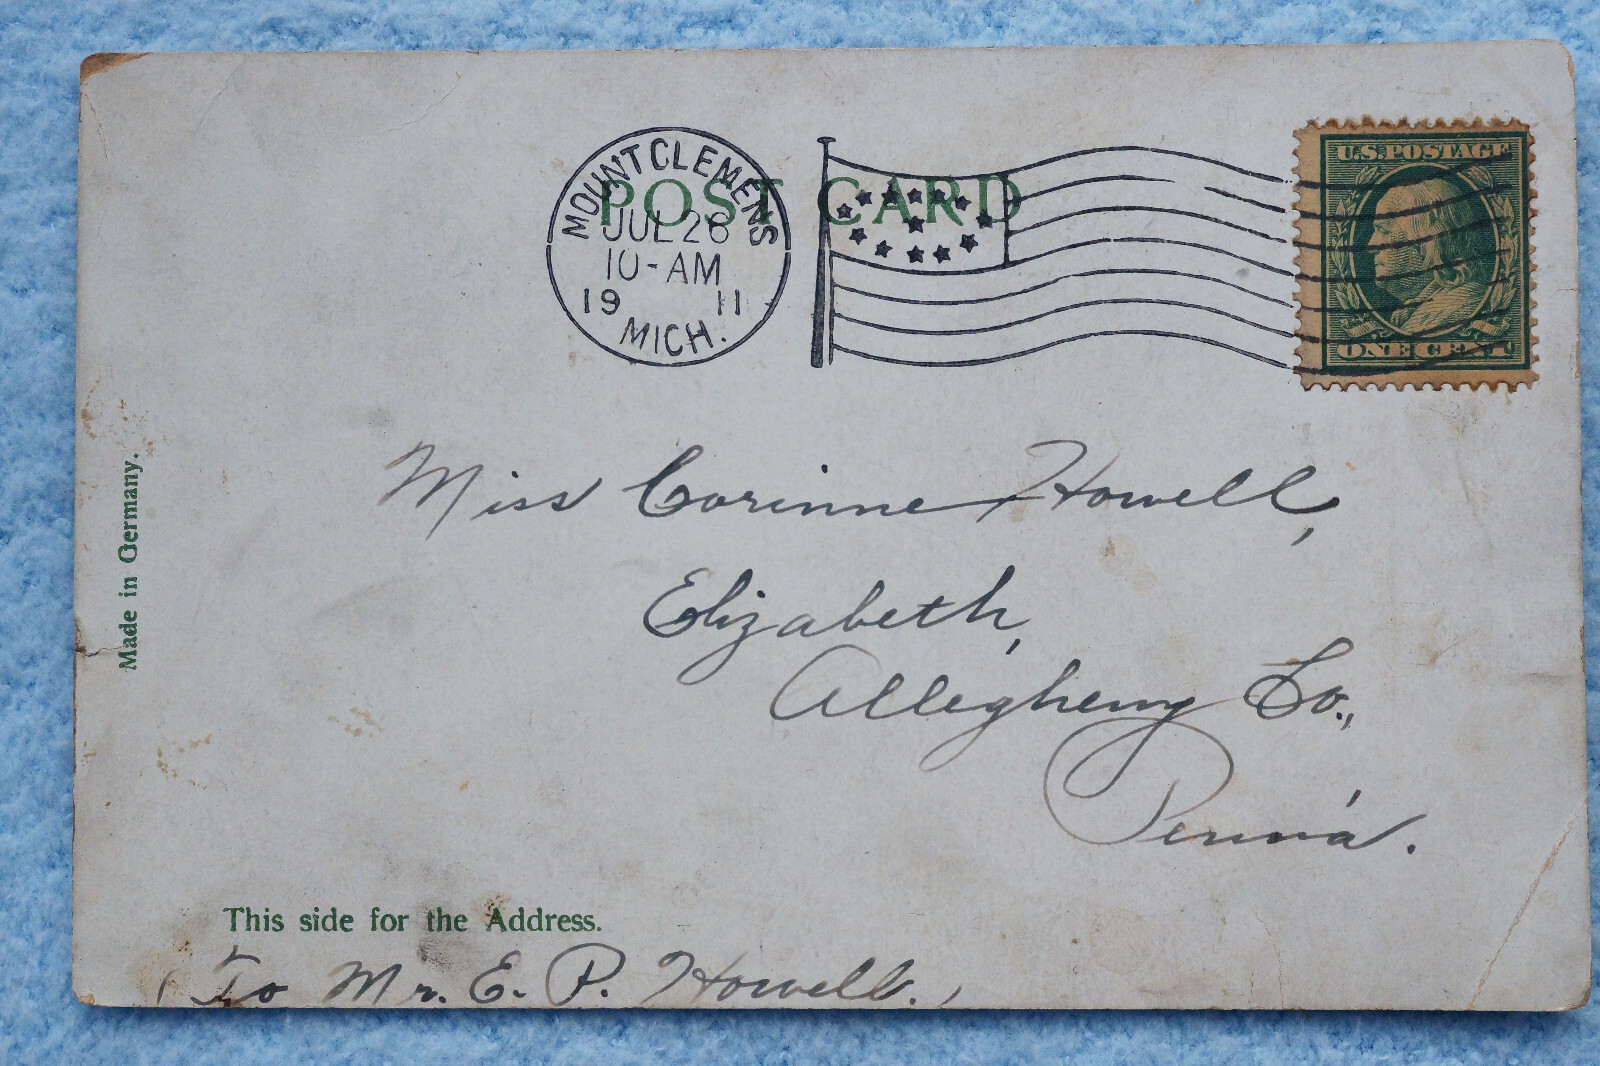 POST CARD
MOUNT CLEMENS
JUL 26
10-AM
19 11
MICH.
U.S. POSTAGE
ONE CENT
Miss Corinne Howell,
Elizabeth,
Allegheny Co.,
Penn'a.
Made in Germany.
This side for the Address.
(To Mr. E. P. Howell.)